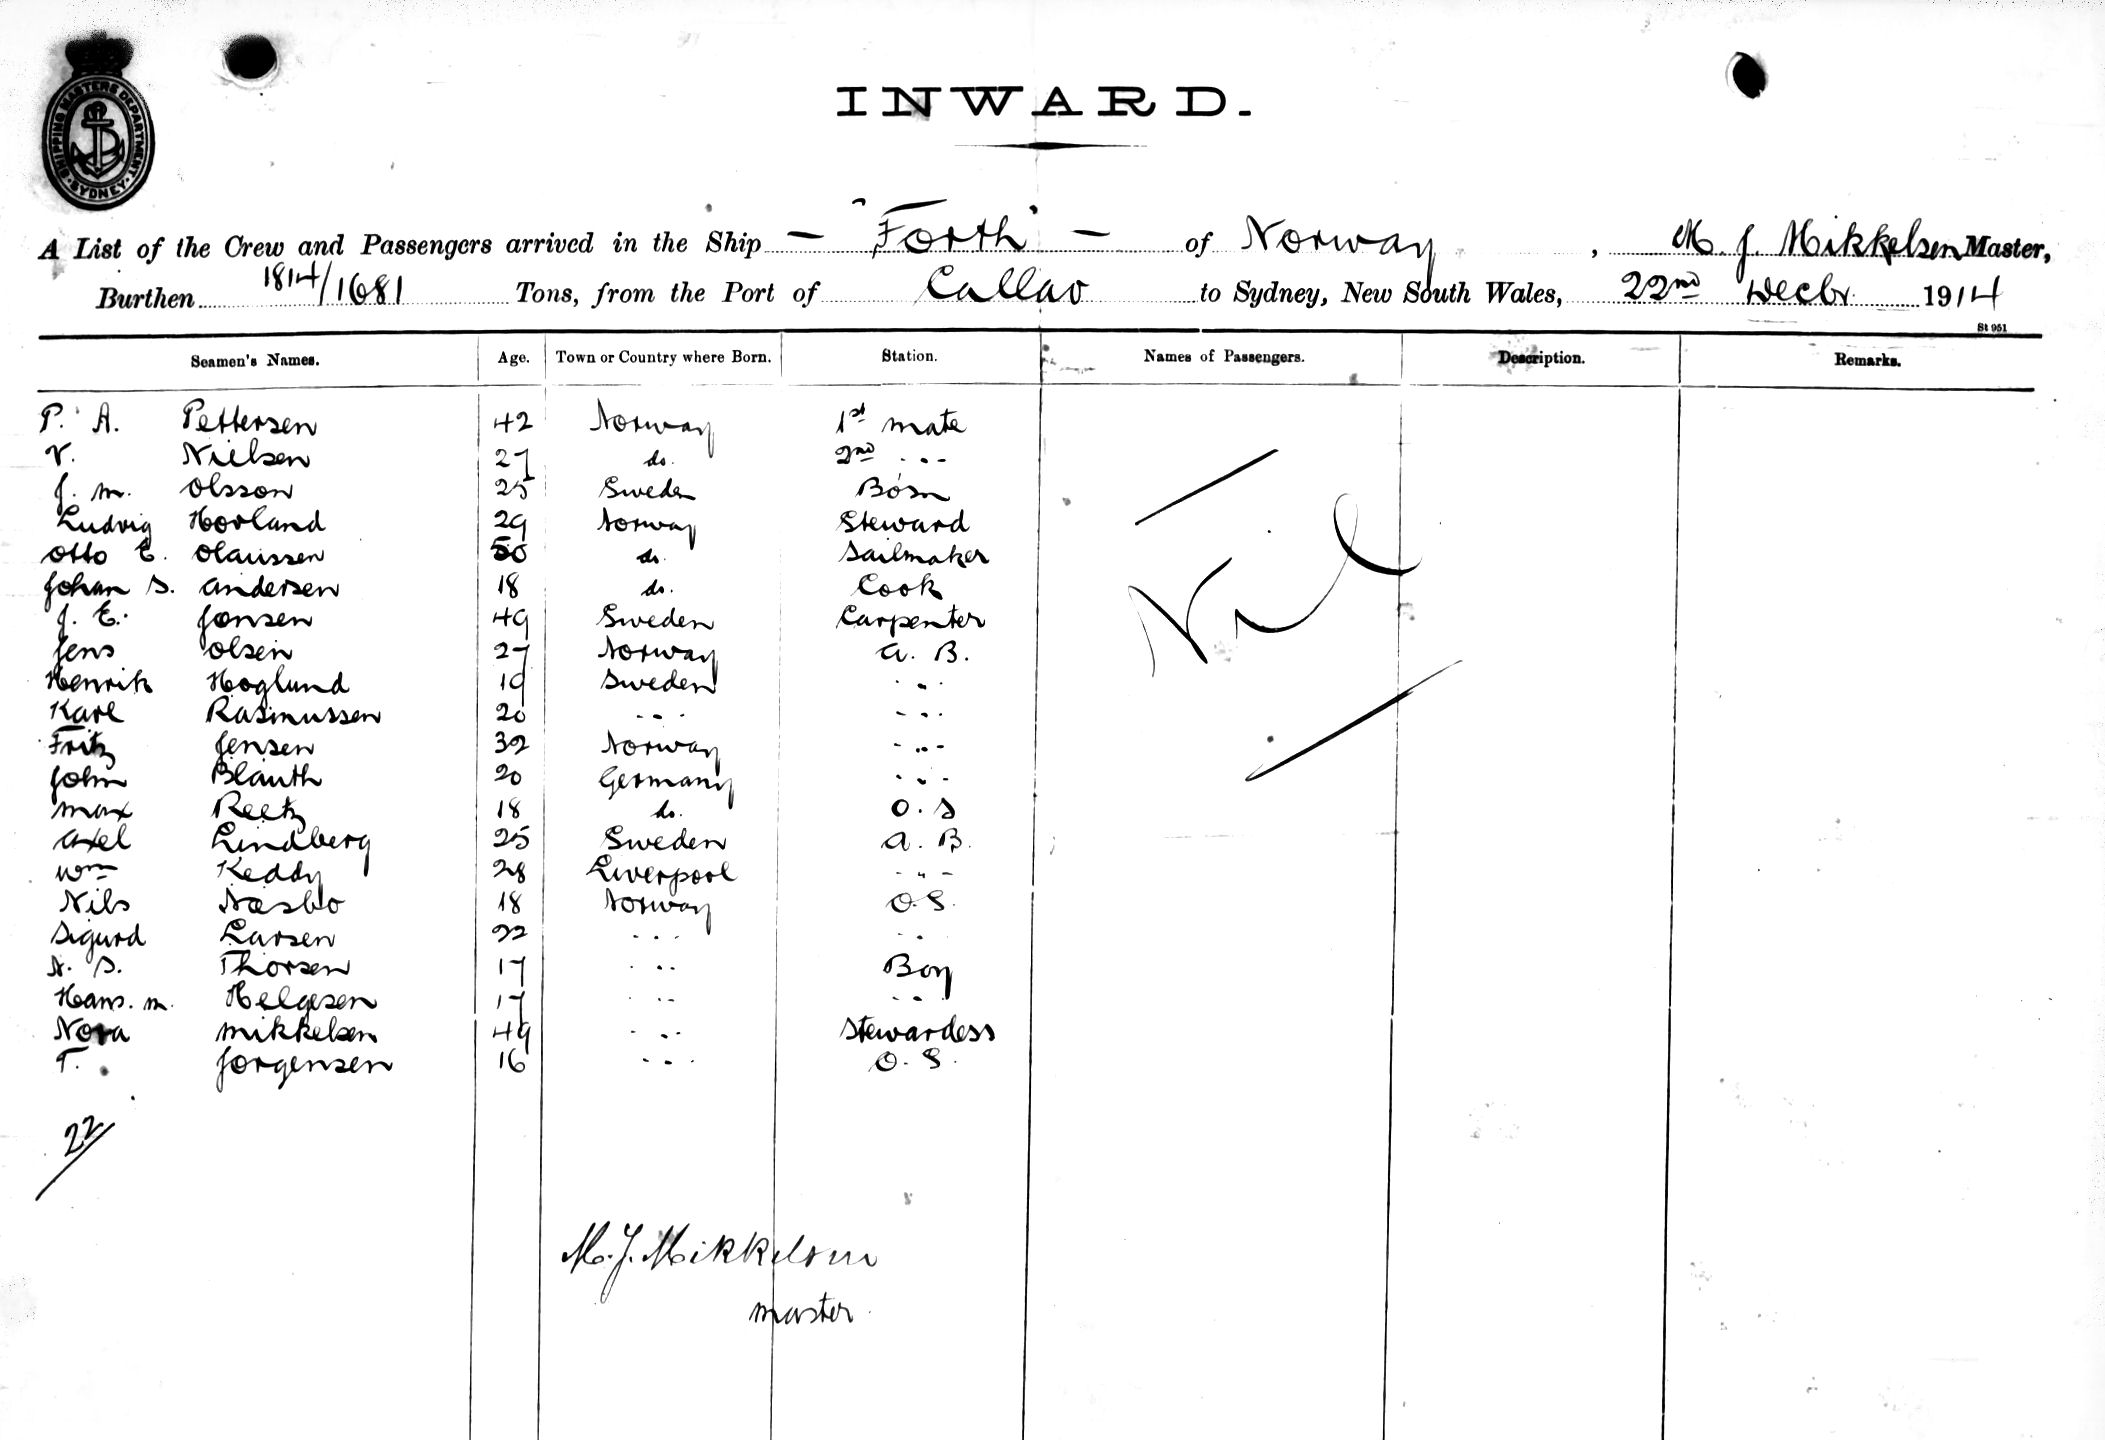 SHIPPING MASTERS DEPARTMENT. SYDNEY.
INWARD.
A List of the Crew and Passengers arrived in the Ship — "Forth" — of Norway, M. J. Mikkelsen Master,
Burthen 1814/1681 Tons, from the Port of Callao to Sydney, New South Wales, 22nd Decbr. 1914
St 951
Seamen's Names. Age. Town or Country where Born. Station. Names of Passengers. Description. Remarks.
P. A. Pettersen 42 Norway 1st mate
V. Nielsen 27 do. 2nd " 
J. m. Olsson 25 Sweden Bosn
Ludvig Hovland 29 Norway Steward
Otto E. Olaussen 50 do. Sailmaker
Johan S. Andersen 18 do. Cook
J. E. Jonsen 49 Sweden Carpenter
Jens Olsen 27 Norway A. B.
Henrik Hoglund 19 Sweden - " -
Karl Rasmussen 20 - " - - " -
Fritz Jensen 32 Norway - " -
John Blauth 20 Germany - " -
Max Reetz 18 do. O. S
Axel Lindberg 25 Sweden A. B.
Wm Keddy 28 Liverpool - " -
Nils Næsbo 18 Norway O. S.
Sigurd Larsen 22 - " - - " -
N. S. Thorsen 17 - " - Boy
Hans. m. Helgesen 17 - " - - " -
Nora Mikkelsen 49 - " - Stewardess
T. Jorgensen 16 - " - O. S.
Nil
22
M. J. Mikkelsen
master